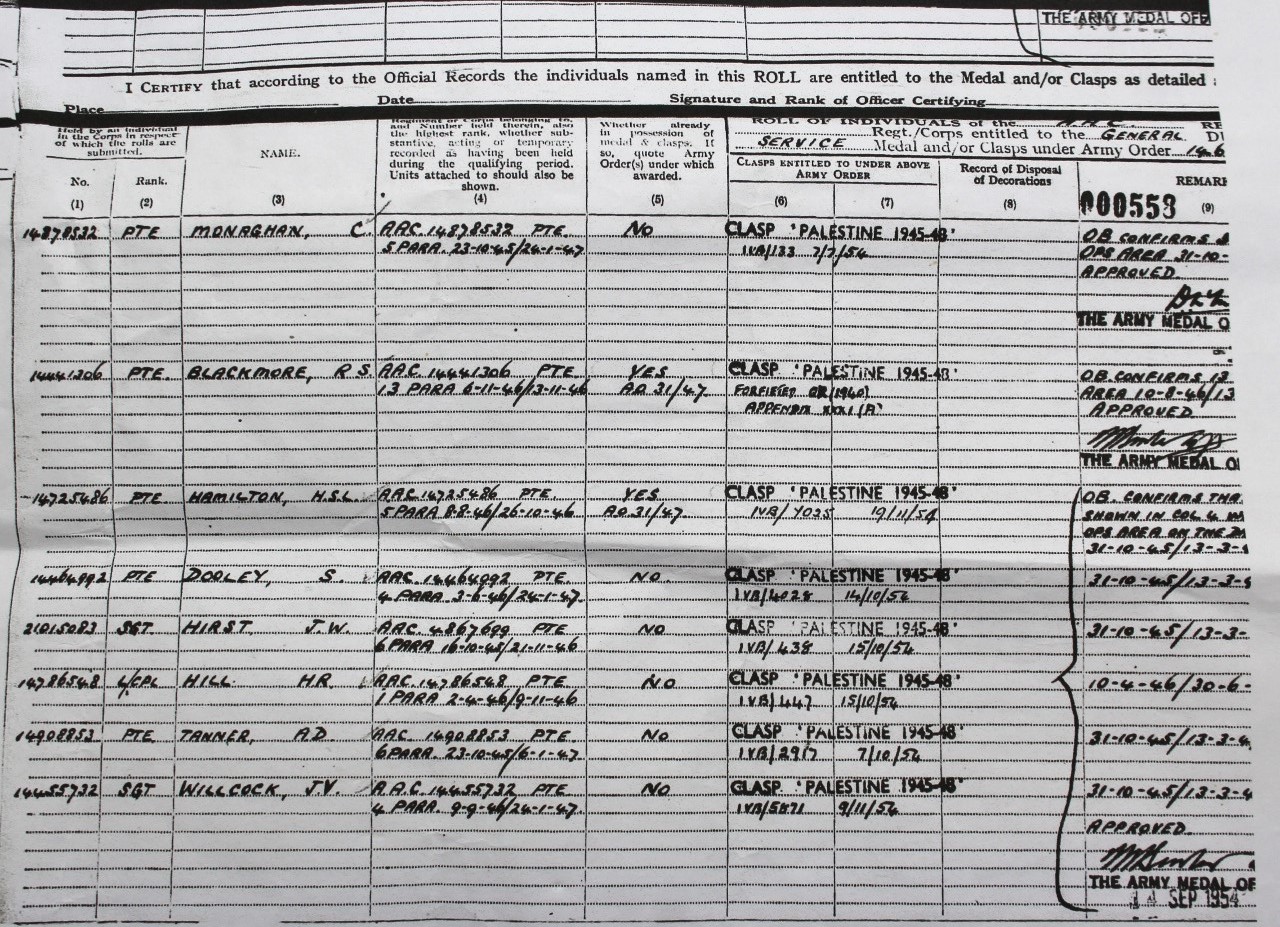 THE ARMY MEDAL OFF
I CERTIFY that according to the Official Records the individuals named in this ROLL are entitled to the Medal and/or Clasps as detailed
Place Date Signature and Rank of Officer Certifying
Held by an individual in the Corps in respect of which the rolls are submitted.
No. (1)
Rank. (2)
NAME. (3)
and Number held therein, also the highest rank, whether substantive, acting or temporary recorded as having been held during the qualifying period. Units attached to should also be shown. (4)
Whether already in possession of medal & clasps. If so, quote Army Order(s) under which awarded. (5)
ROLL OF INDIVIDUALS of the
Regt./Corps entitled to the GENERAL
SERVICE Medal and/or Clasps under Army Order 146
CLASPS ENTITLED TO UNDER ABOVE ARMY ORDER
(6) (7)
Record of Disposal of Decorations (8)
REMARK
000553 (9)
14878532 PTE MONAGHAN, C. AAC. 14878532 PTE No CLASP 'PALESTINE 1945-48' OB CONFIRMS
5 PARA. 23-10-45/24-1-47 IVB/133 7/7/54 OPS AREA 31-10-
APPROVED
THE ARMY MEDAL O
14441306 PTE. BLACKMORE, R S. AAC. 14441306 PTE. YES CLASP 'PALESTINE 1945-48' OB CONFIRMS 13
13 PARA 6-11-46/13-11-46 AO 31/47 FORFIETED QR (1940) AREA 10-8-46/13
APPENDIX XXXI (A) APPROVED
THE ARMY MEDAL O
14725486 PTE HAMILTON, H.S.L. AAC. 14725486 PTE. YES. CLASP 'PALESTINE 1945-48' OB. CONFIRMS THA
5 PARA 8-8-46/26-10-46 AO 31/47. IVB/7025 19/11/54 SHOWN IN COL 4
OPS AREA ON THE
31-10-45/13-3-
14464992 PTE DOOLEY, S. AAC. 14464992 PTE No. CLASP 'PALESTINE 1945-48' 31-10-45/13-3-
4 PARA 3-6-46/24-1-47. IVB/4028 14/10/54
21015083 SGT HIRST J.W. AAC. 4867699 PTE NO CLASP 'PALESTINE 1945-48' 31-10-45/13-3-
6 PARA 16-10-45/21-11-46 IVB/438 15/10/54
14786548 L/CPL HILL HR. AAC. 14786548 PTE No CLASP 'PALESTINE 1945-48' 10-4-46/30-6-
1 PARA 2-4-46/9-11-46 IVB/447 15/10/54
14908853 PTE TANNER, AD AAC 14908853 PTE No CLASP 'PALESTINE 1945-48' 31-10-45/13-3-4
6 PARA 23-10-45/6-1-47. IVB/2917 7/10/54
14455732 SGT WILLCOCK, J.V. A.A.C. 14455732 PTE No CLASP 'PALESTINE 1945-48' 31-10-45/13-3-4
4 PARA. 9-9-46/24-1-47. IVB/5871 9/11/54
APPROVED.
THE ARMY MEDAL OF
14 SEP 1954